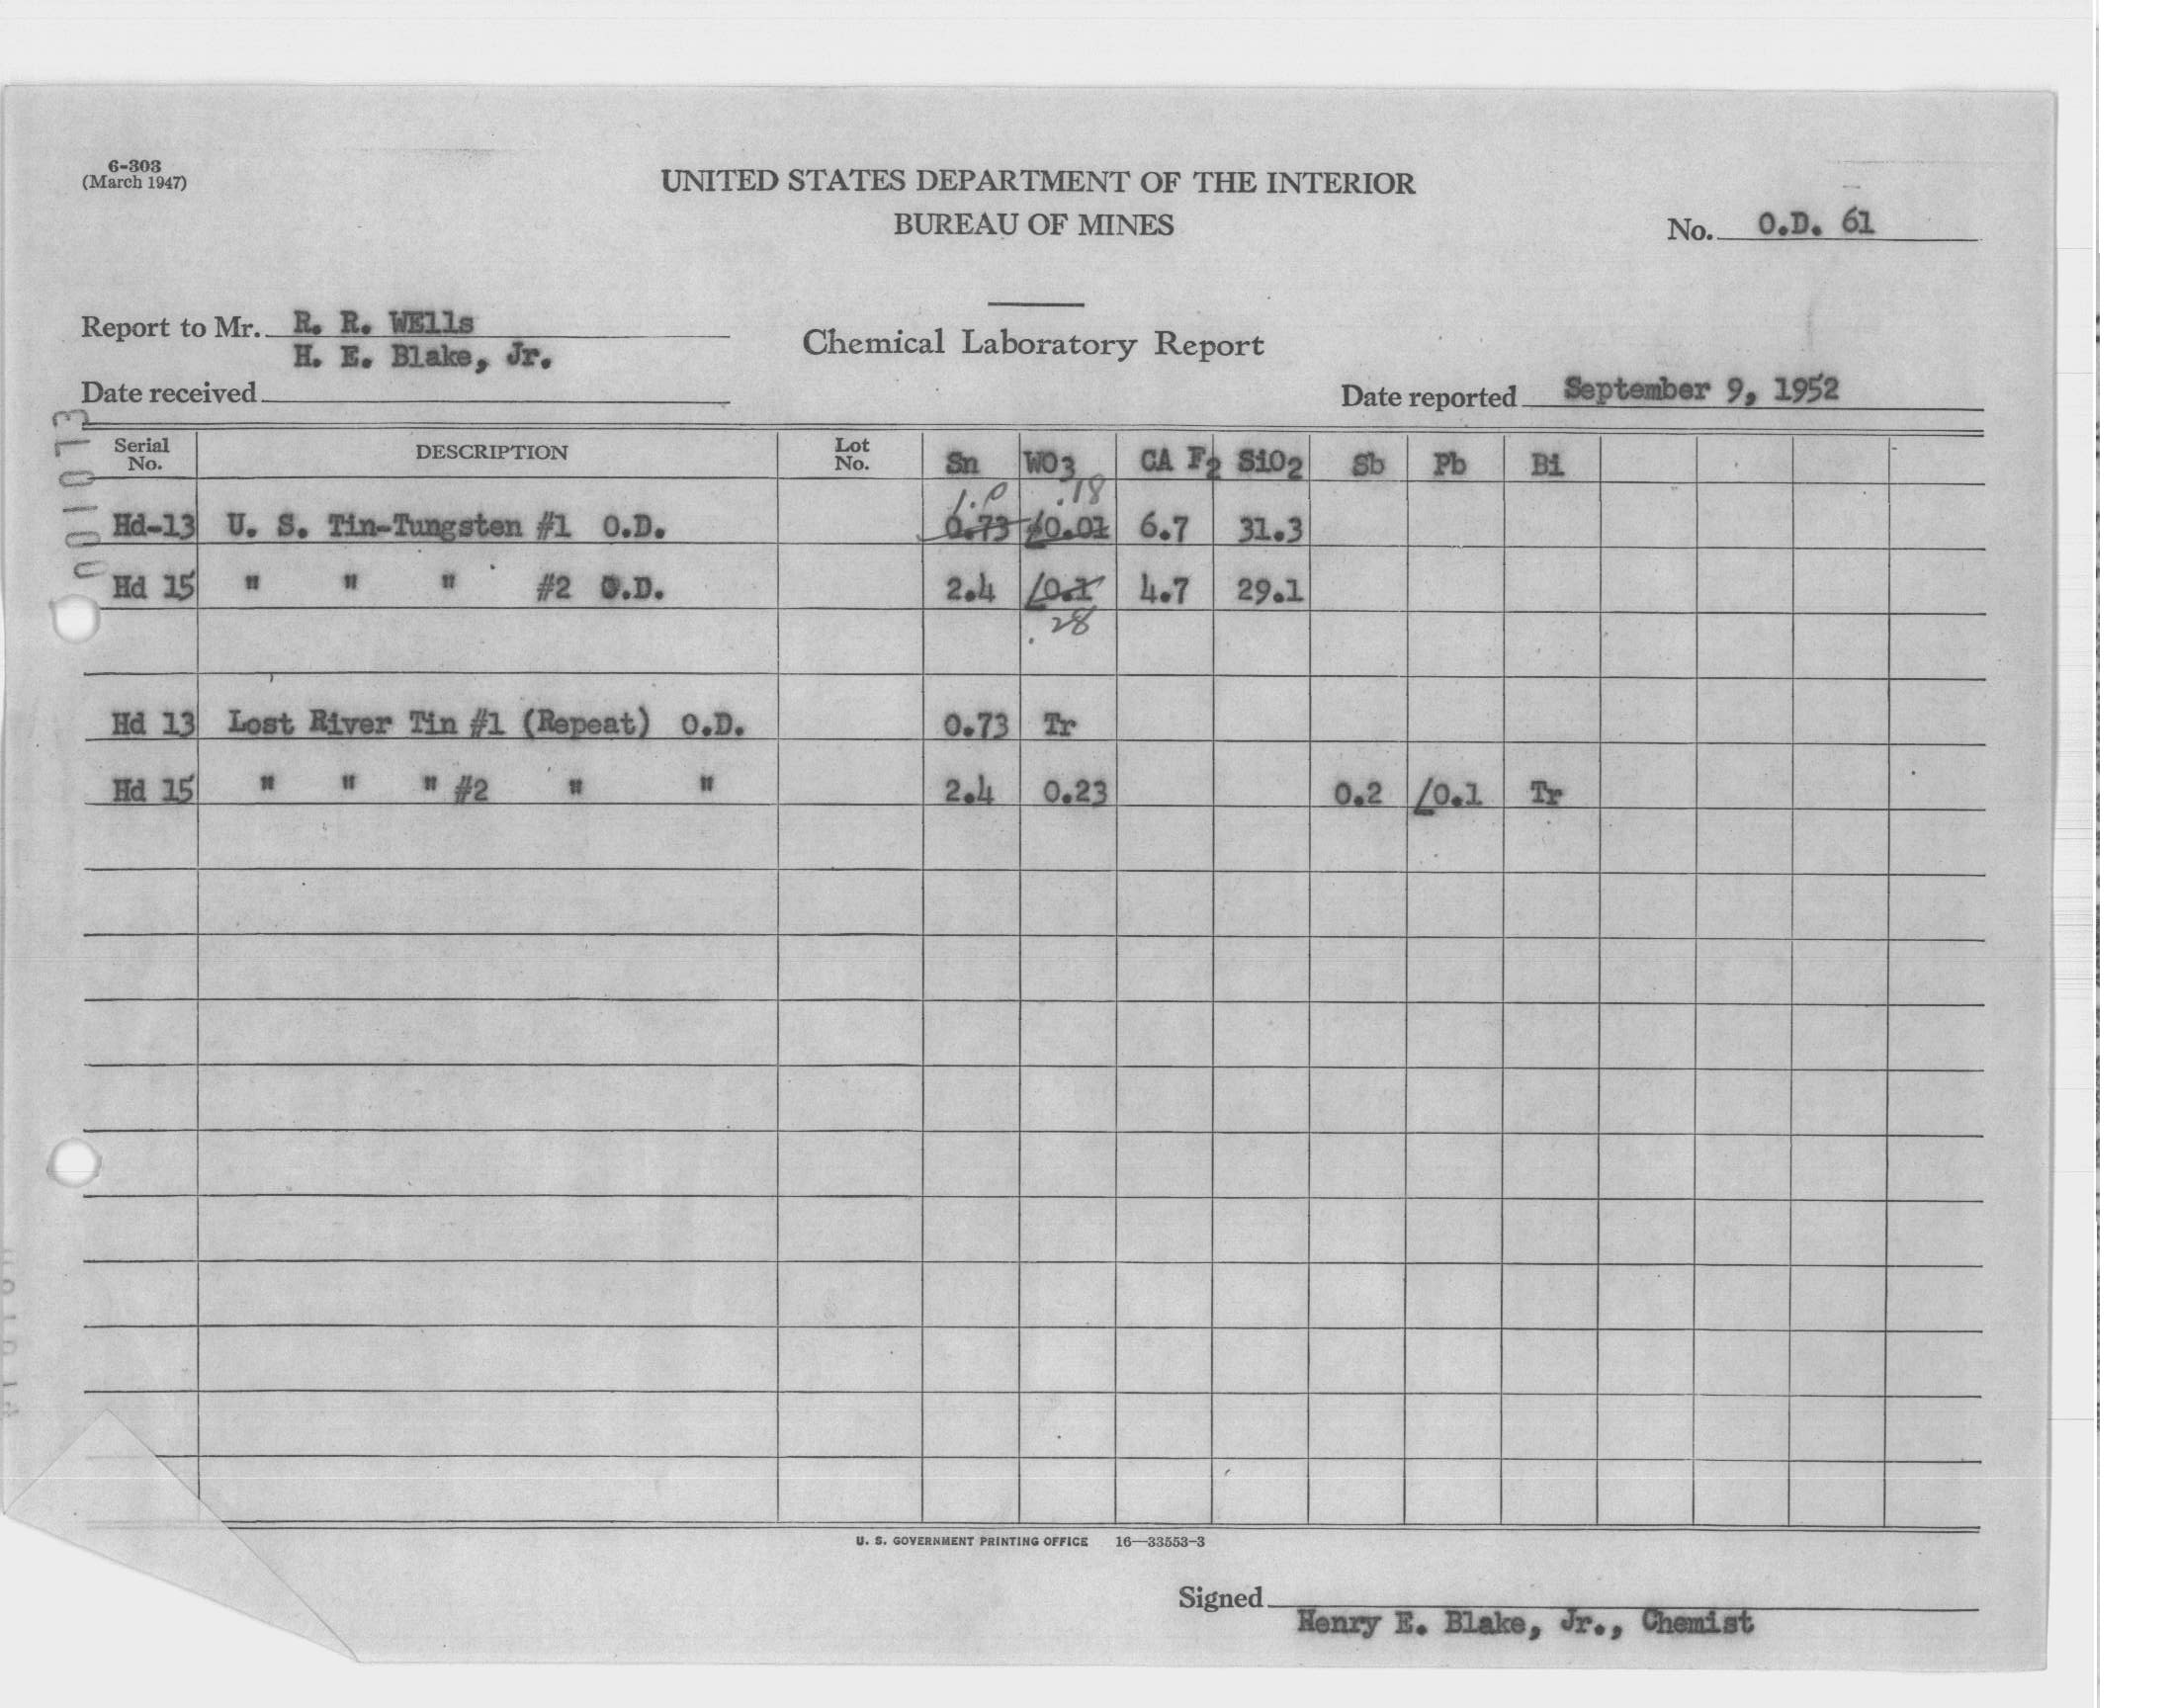 6-303
(March 1947)
UNITED STATES DEPARTMENT OF THE INTERIOR
BUREAU OF MINES
No. O.D. 61
Report to Mr. R. R. WElls
H. E. Blake, Jr.
Chemical Laboratory Report
Date received
Date reported September 9, 1952
001073
Serial No. DESCRIPTION Lot No. Sn WO3 CA F2 SiO2 Sb Pb Bi
1.0 .18
Hd-13 U. S. Tin-Tungsten #1 O.D. 0.73 /0.01 6.7 31.3
Hd 15 " " " #2 O.D. 2.4 /0.1 4.7 29.1
.28
Hd 13 Lost River Tin #1 (Repeat) O.D. 0.73 Tr
Hd 15 " " " #2 " " 2.4 0.23 0.2 /0.1 Tr
U. S. GOVERNMENT PRINTING OFFICE 16—33553-3
Signed
Henry E. Blake, Jr., Chemist